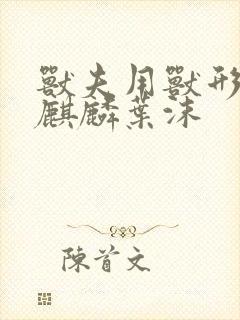 獸夫用獸形
麒麟葉沫
陳首文